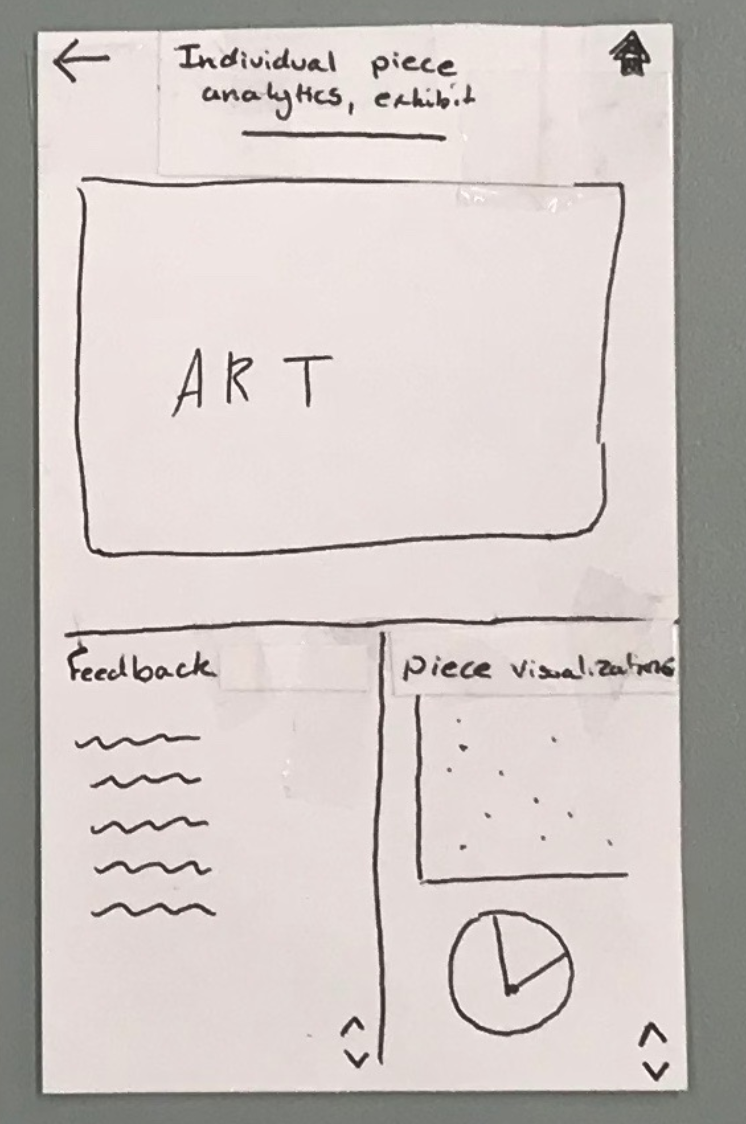 Individual piece
analytics, exhibit
ART
Feedback
piece visualizations